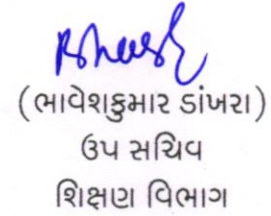 (ભાવેશકુમાર ડાંખરા)
ઉપ સચિવ
શિક્ષણ વિભાગ